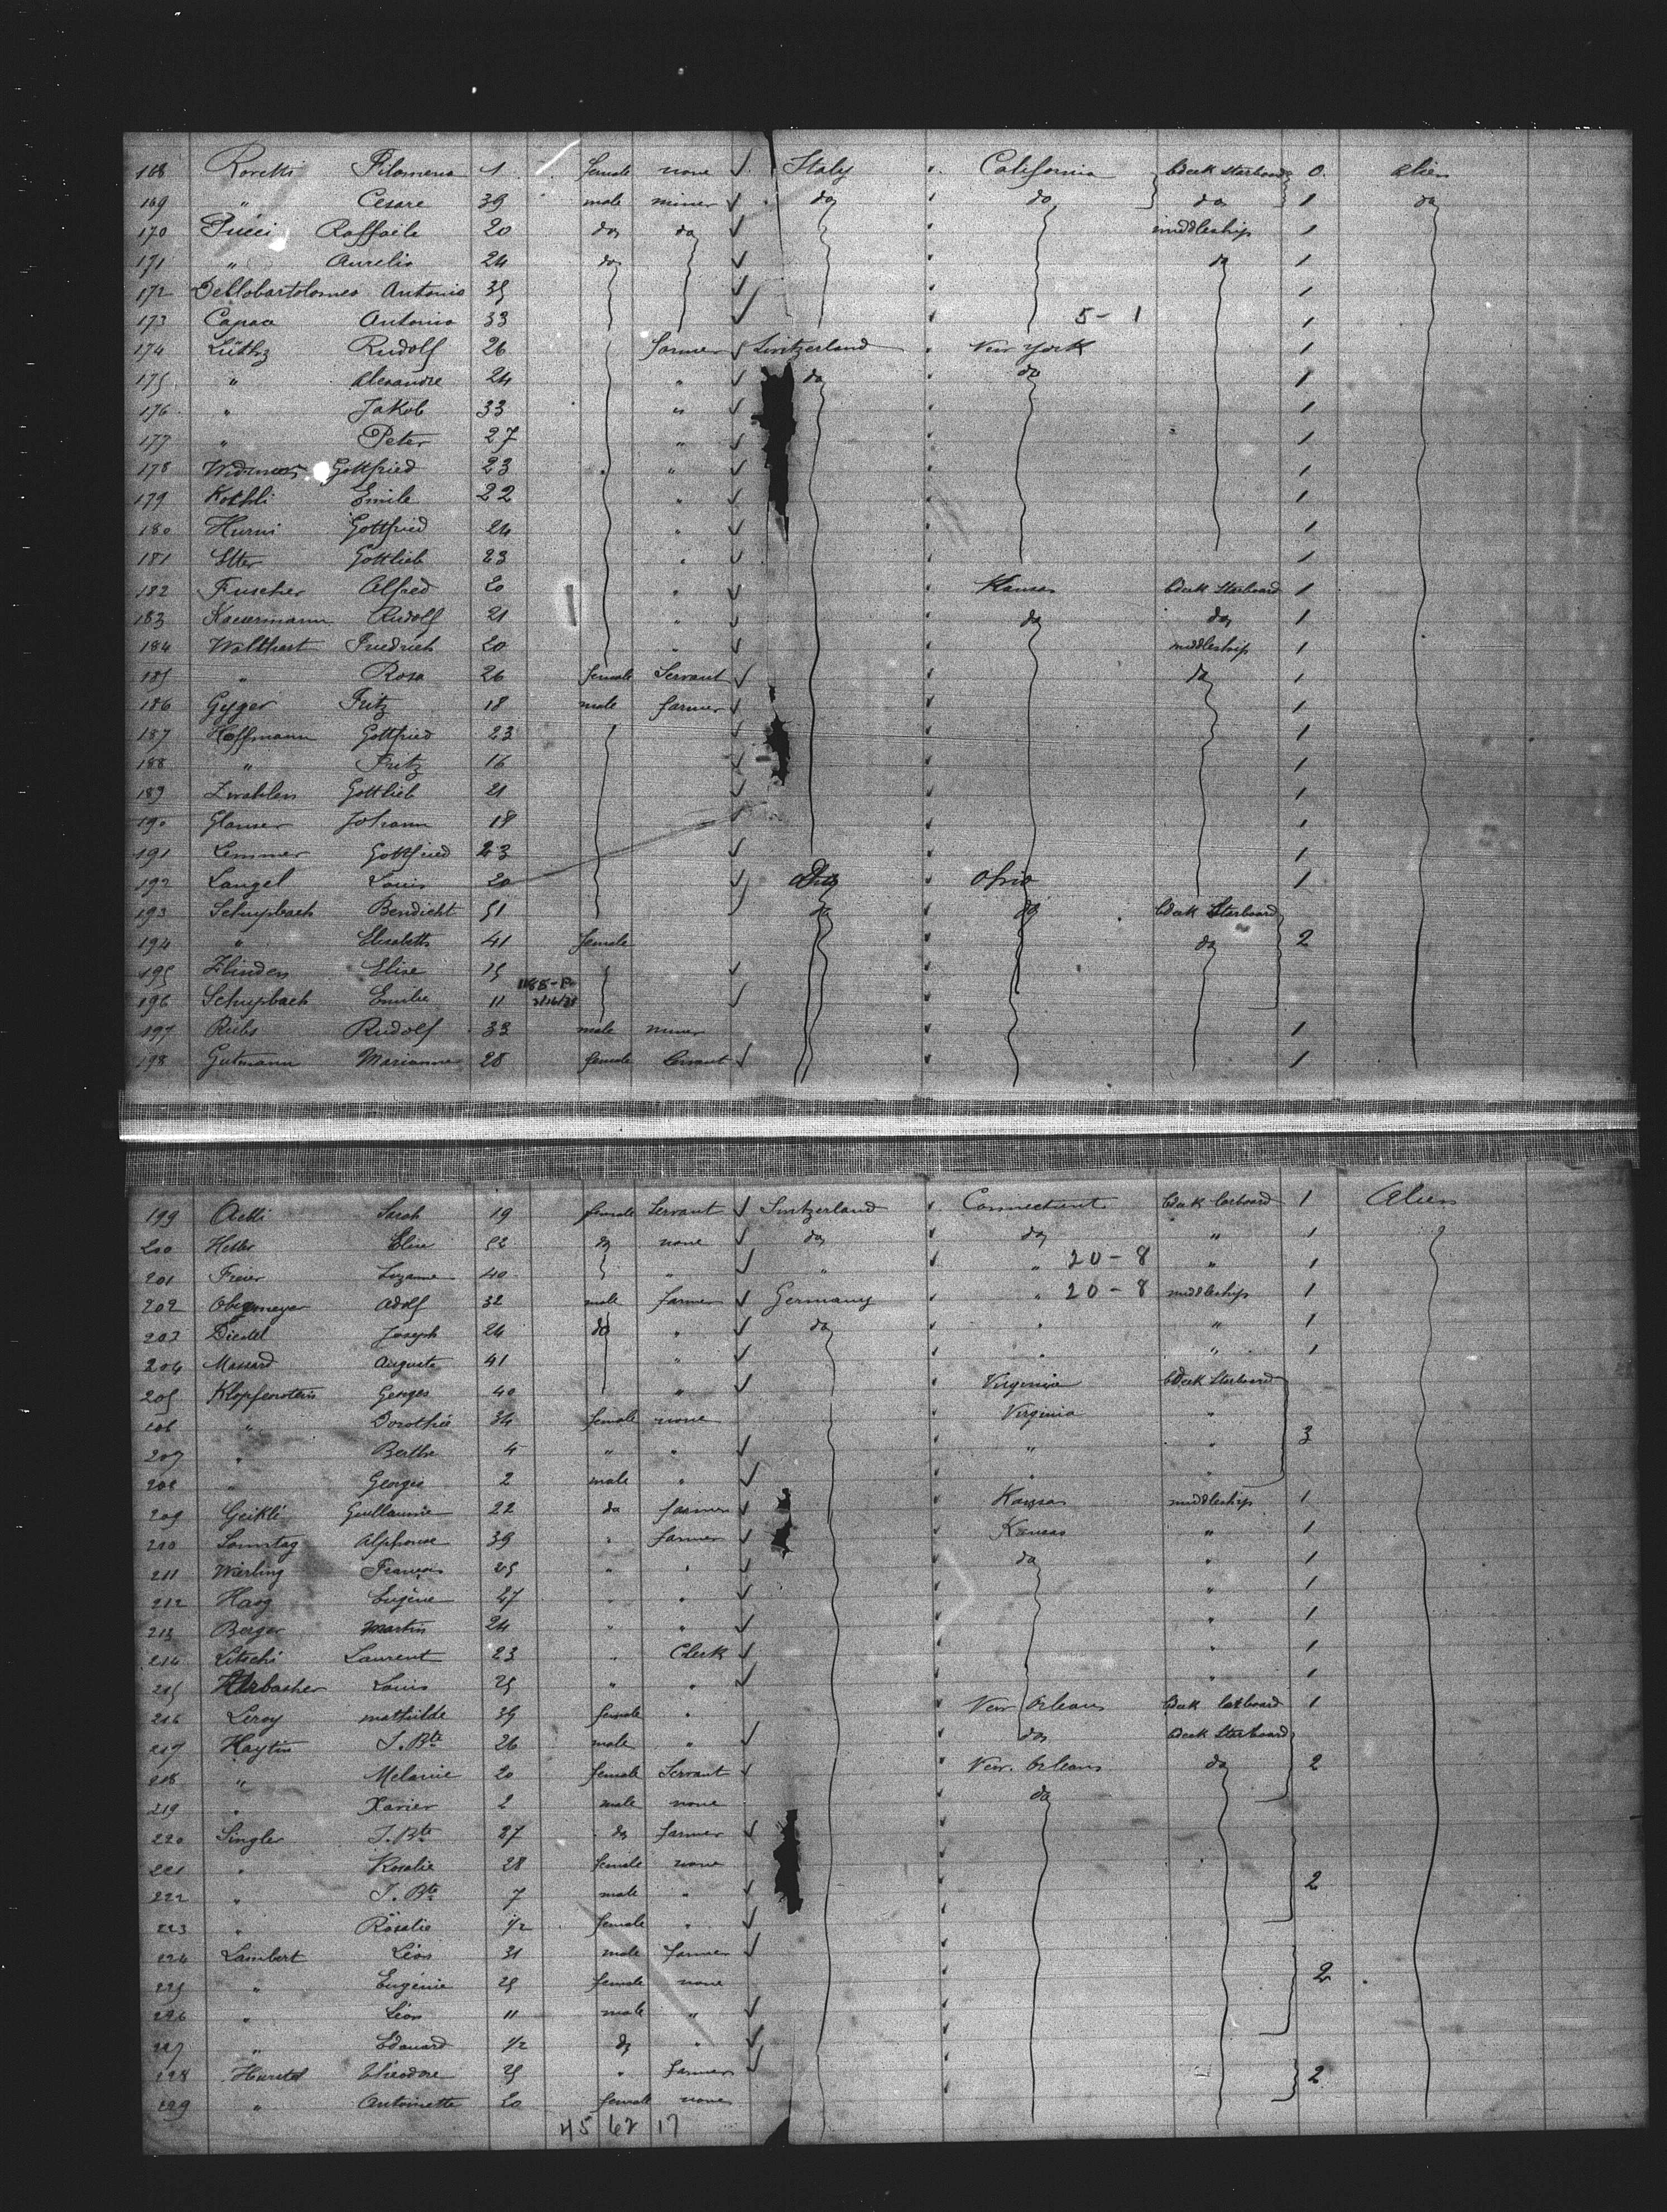 168 Roretti Filomena 1 female none Italy California bdeck Starboard 0 alien
169 " Cesare 39 male miner do do do 1 do
170 Pucci Raffaile 20 do do middleship 1
171 " Aurelio 24 do do 1
172 Dellobartolomeo Antonio 35 1
173 Capaca Antonio 33 5 - 1 1
174 Lüthy Rudolf 26 farmer Switzerland New York 1
175 " Alexandre 24 " do do 1
176 " Jakob 33 " 1
177 " Peter 27 " 1
178 Gottfried 23 " 1
179 Emile 22 " 1
180 Hurni Gottfried 24 " 1
181 Etter Gottlieb 23 " 1
182 Fuscher Alfred 20 " Kansas bdeck Starboard 1
183 Kaesermann Rudolf 21 " do do 1
184 Walthert Friedrich 20 " middleship 1
185 " Rosa 26 female Servant do 1
186 Gyger Fritz 18 male farmer 1
187 Hoffmann Gottfried 23 1
188 " Fritz 16 1
189 Zwahlen Gottlieb 21 1
190 Glauser Johann 18 1
191 Lemmer Gottfried 23 1
192 Langel Louis 20 Ohio 1
193 Schupbach Bendicht 51 do do bdeck Starboard
194 " Elisabeth 41 female do 2
195 Zlinden Elise 15
196 Schupbach Emilie 11
197 Rudolf 33 male miner 1
198 Gutmann Marianne 28 female Servant 1
199 Aetti Sarah 19 female Servant Switzerland Connecticut bdeck larboard 1 Alien
200 Elise 52 do none do do " 1
201 Suzanne 40 " " " 20 - 8 " 1
202 Obermeyer Adolf 32 male farmer Germany " 20 - 8 middleship 1
203 Joseph 24 do " do " " 1
204 Massard Auguste 41 " " " 1
205 Klopfenstein Georges 40 " Virginia bdeck Starboard
206 " Dorothée 34 female none Virginia "
207 " Berthe 4 " " " " 3
208 " Georges 2 male " " "
209 Geikli Guillaume 22 do farmer Kansas middleship 1
210 Sonntag Alphonse 39 " farmer Kansas " 1
211 Wierling François 25 " " do " 1
212 Haag Eugène 47 " " " 1
213 Berger Martin 24 " " " 1
214 Litschi Laurent 23 " Clerk " 1
215 Louis 25 " " " 1
216 Leroy mathilde 39 female " New Orleans bdeck larboard 1
217 Haytin J. Bte 26 male " do bdeck Starboard
218 " Melanie 20 female Servant New Orleans do 2
219 " Xavier 2 male none do
220 Singler J. Bte 37 do farmer
221 " Rosalie 28 female none
222 " J. Bte 7 male " 2
223 " Rosalie 1/2 female "
224 Lambert Léon 31 male farmer
225 " Eugénie 25 female none 2
226 " Léon 11 male "
227 " Edouard 1/2 do "
228 Théodore 25 " farmer 2
229 " Antoinette 20 female none
45 62 17